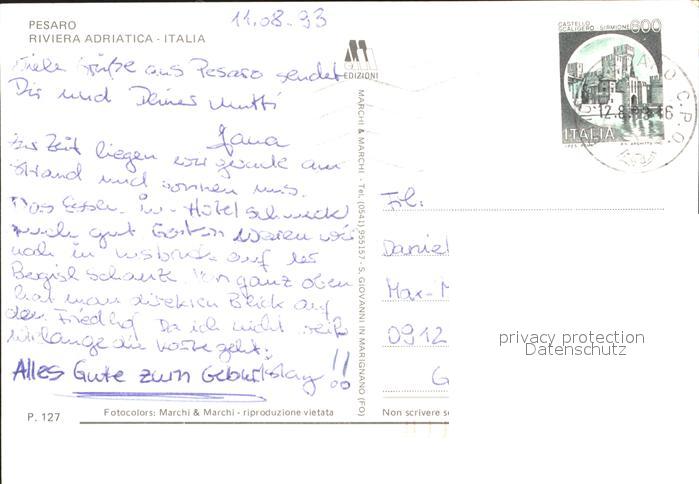 PESARO
RIVIERA ADRIATICA - ITALIA
11.08.93
Viele Grüße aus Pesaro sendet
Dir und Deiner Mutti
Jana
Zur Zeit liegen wir gerade am
Strand und sonnen uns.
Das Essen im Hotel schmeckt
auch gut Gestern waren wir
noch in Insbruck auf der
Bergisl schanze. Von ganz oben
hat man direkten Blick auf
den Friedhof Da ich nicht weiß
wie lange die Karte geht:
Alles Gute zum Geburtstag!!
P. 127
Fotocolors: Marchi & Marchi - riproduzione vietata
EDIZIONI
MARCHI & MARCHI - Tel. (0541) 955157 - S. GIOVANNI IN MARIGNANO (FO)
CASTELLO
SCALIGERO - SIRMIONE
600
ITALIA
C.P.O.
12.8.93-16
Frl.
Daniel
Max-
0912
G
privacy protection
Datenschutz
Non scrivere s